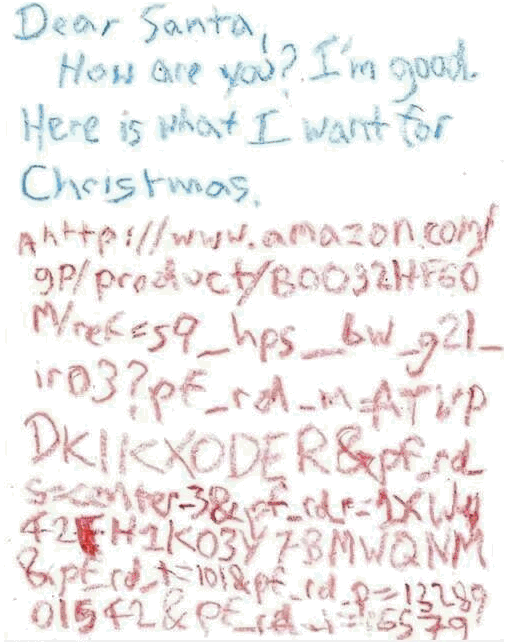 Dear Santa,
How are you? I'm good.
Here is what I want for
Christmas.
Ahttp://www.amazon.com/
gp/product/B0032HF60
M/ref=s9_hps_bw_g21_
ir03?pf_rd_m=ATVP
DKIKX0DER&pf_rd_
s=center-3&pf_rd_r=1XWY
42FH1K03Y78MWQNM
&pf_rd_t=101&pf_rd_p=13289
01542&pf_rd_i=16579